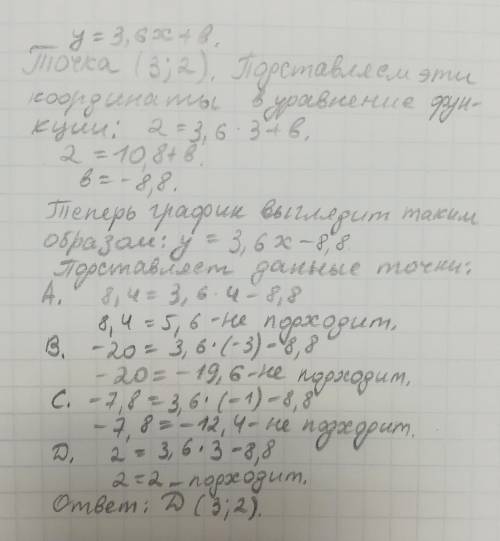 y = 3,6x + в.
Точка (3; 2). Подставляем эти
координаты в уравнение фун-
кции: 2 = 3,6 · 3 + в.
2 = 10,8 + в.
в = -8,8.
Теперь график выглядит таким
образом: y = 3,6x - 8,8
Подставляет данные точки:
A. 8,4 = 3,6 · 4 - 8,8
8,4 = 5,6 - не подходит.
B. -20 = 3,6 · (-3) - 8,8
-20 = -19,6 - не подходит.
C. -7,8 = 3,6 · (-1) - 8,8
-7,8 = -12,4 - не подходит.
D. 2 = 3,6 · 3 - 8,8
2 = 2 - подходит.
Ответ: D (3; 2).